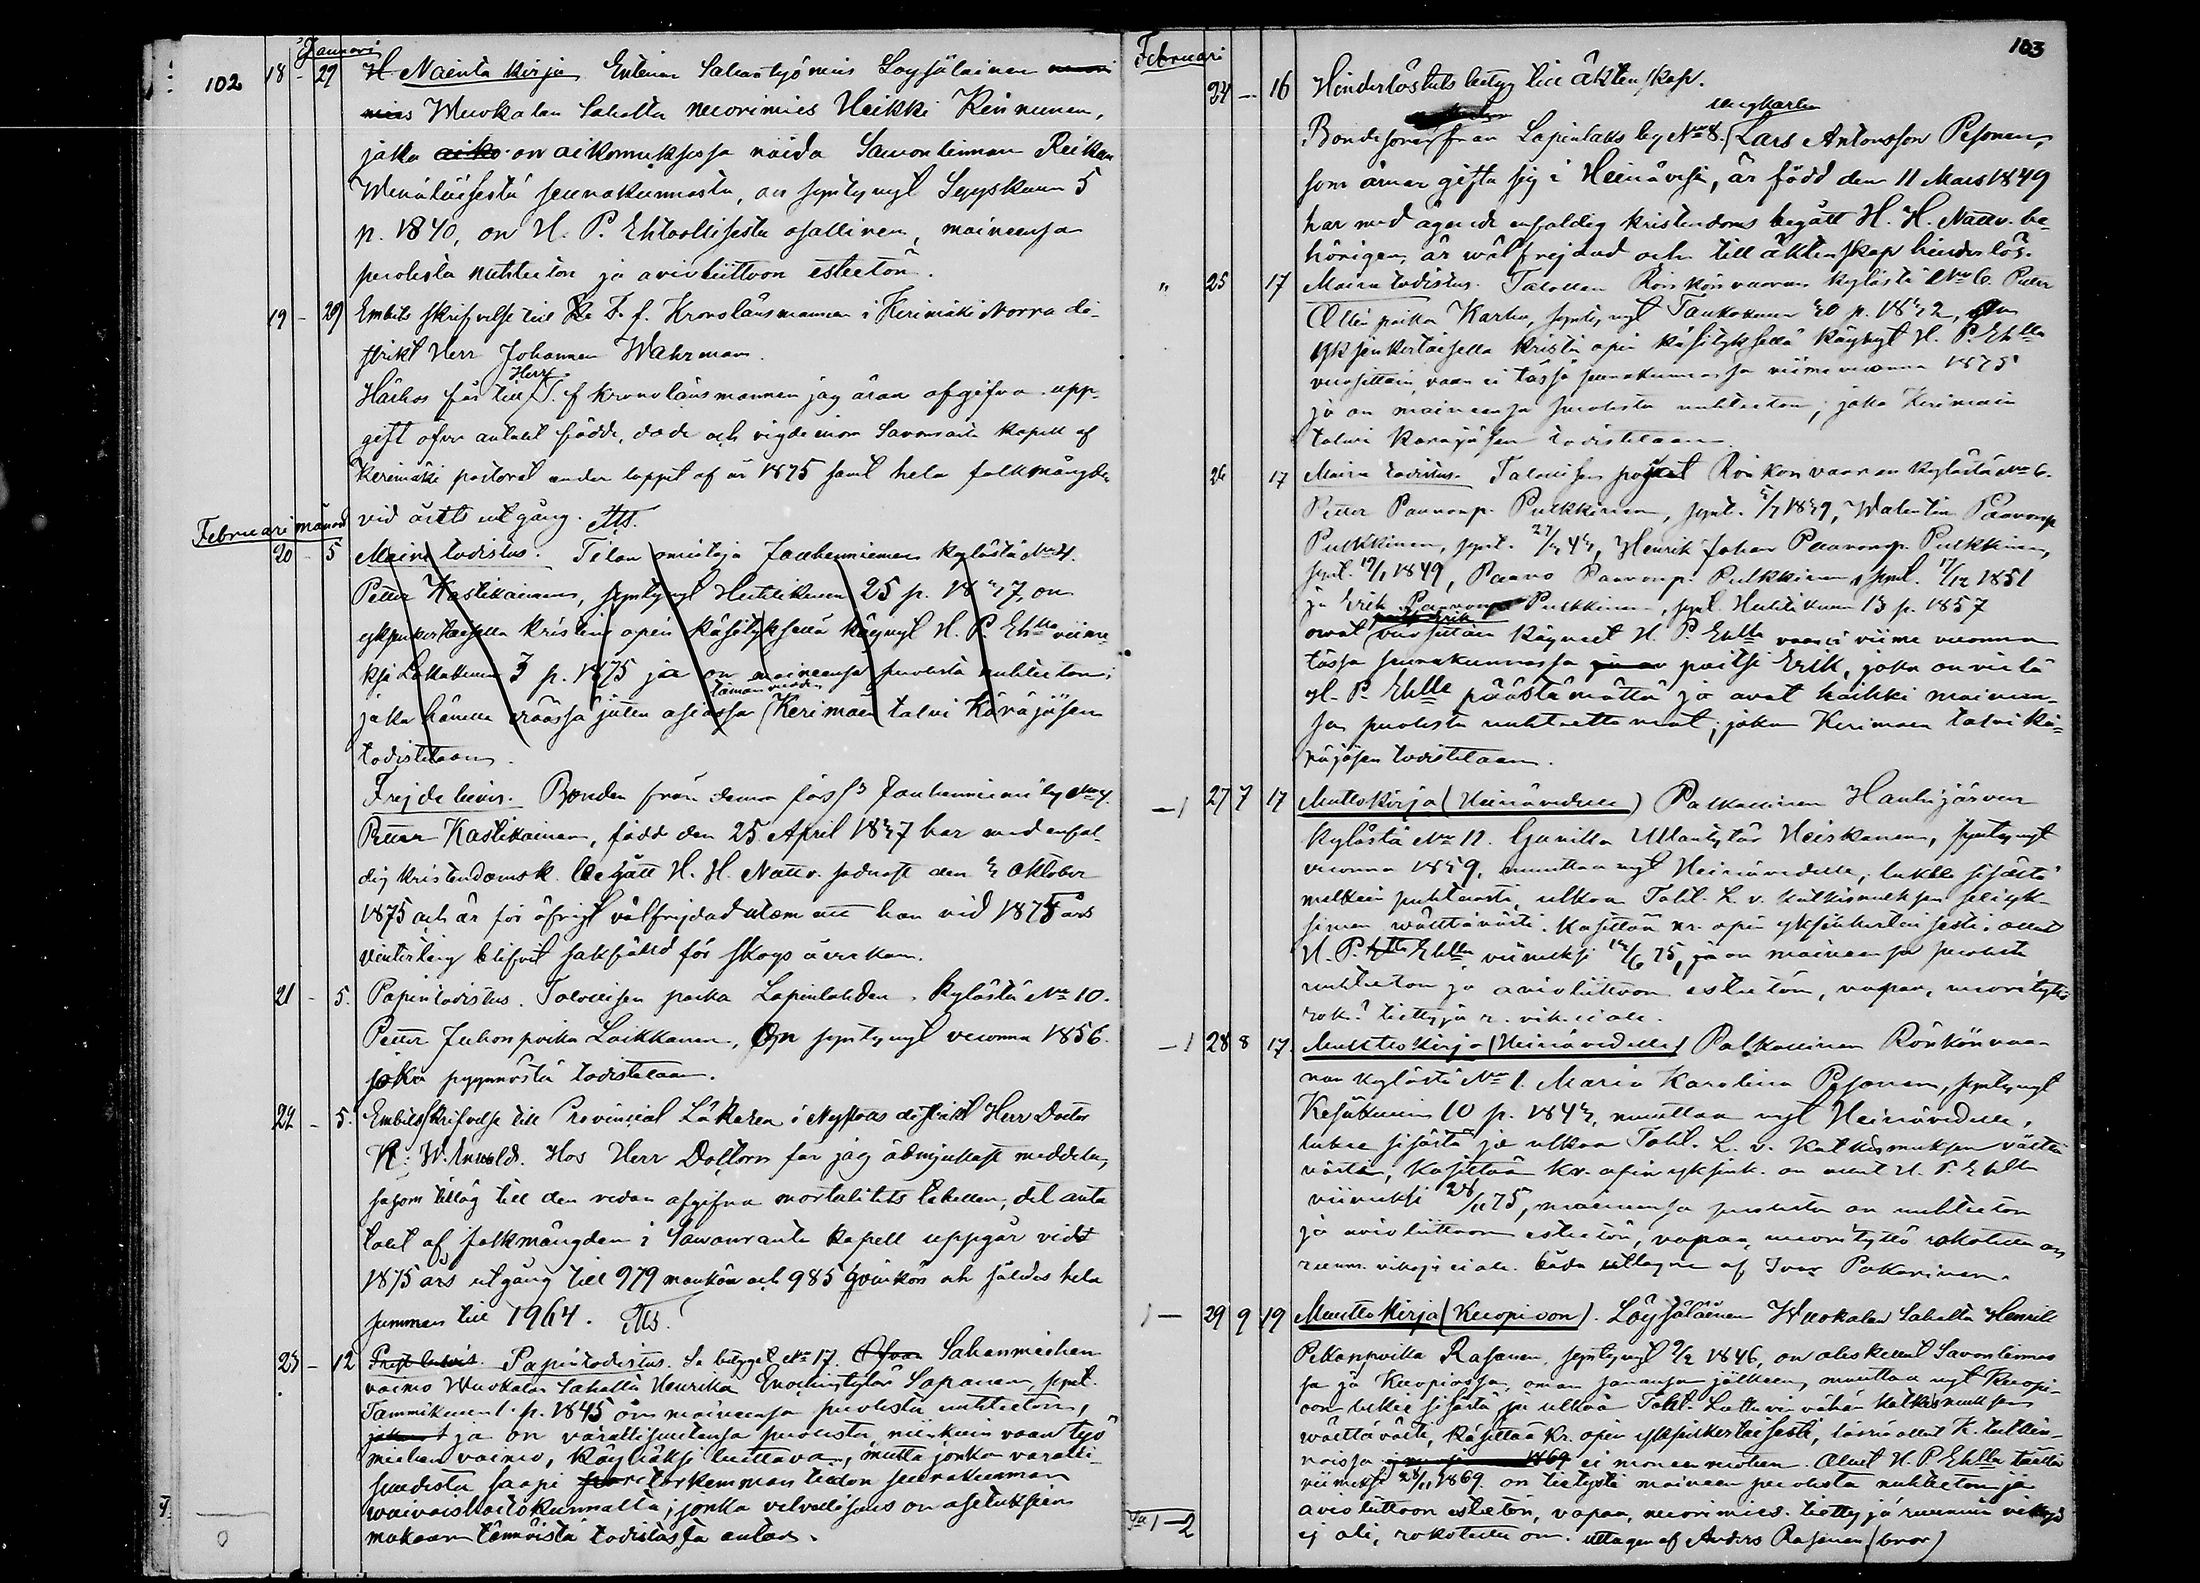 102
Januari
18 - 29 H Nainta kirja Entinen Sahantyömies Loysäläinen
mies Wuokalan Sahalta nuorimies Heikki Reinunen,
joka aiko on aikomuksessa naida Sawonlinnan
seurakunnasta, on syntynyt Syyskuun 5
p. 1840, on H. P. Ehtoollisesta osallinen, maineensa
puolesta nuhteeton ja avioliittoon esteetön.
19 - 29 Embets skrifvelse till T. f. Kronolänsmannen i Kerimäki Norra di-
strikt Herr Johannes Wahrman.
Härhos får till Herr T. f. kronolänsmannen jag äran afgifva upp-
gift öfver antalet födde, döde och vigde inom Savonranta kapell af
Kerimäki pastorat under loppet af år 1875 samt hela folkmängden
vid årets utgång.
Februari månad
20 - 5 Maine todistus. Tilan omistaja Jouhenniemen kylästä No 4.
Petter Kastikainen, syntynyt Huhtikuun 25 p. 1837, on
yksinkertaisella kristin opin käsityksellä käynyt H. P. Ehlla viime-
ksi Lokakuun 3 p. 1875 ja on maineensa puolesta nuhteeton;
joka hänelle eräässä jutun asiassa tämän vuoden Kerimäen talvi Käräjösen
todistetaan.
Frejde bevis. Bonden från denna förs:s Jouhenniemi by No 4.
Petter Kastikainen, född den 25 April 1837 har med enfal-
dig kristendomsk. begått H. H. Nattv. sednast den 3 Oktober
1875 och är för öfrigt välfrejdad utom att han vid 1875 års
vinterting blifvit sakfälld för skogs åverkan.
21 - 5. Papintodistus. Talollisen poika Lapinlahden kylästä No 10.
Petter Juhonpoika Laikkanen, On syntynyt vuonna 1856.
joka pyynnöstä todistetaan.
22 - 5. Embetsskrifvelse till Provincial Läkaren i Nyslotts distrikt Herr Doctor
W. Hos Herr Doktorn får jag ödmjukast meddela,
såsom tillåg till den redan afgifna mortalitets tabellen, det anta-
talet af folkmängden i Sawonranta kapell uppgår vid
1875 års utgång till 979 mankön och 985 qvinkön och således hela
summan till 1964.
23 - 12 Papintodistus. Se betyget No 17. Sahanmiehen
vaimo Wuokalan Sahalta Henrika Enochintytär Sapanen, synt.
Tammikuun 1 p. 1845 on maineensa puolesta nuhteeton,
ja on varallisuutensa puolesta, niinkuin vaan työ
miehen vaimo, köyhäksi luettava, mutta jonka varalli-
suudesta saapi tarkemman tiedon seurakunnan
waivaishoitokunnalta; jonka velvollisuus on asetuksien
mukaan tämmöistä todistusta antaa.
103
Februari
24 - 16 Hinderlöshets betyg till äktenskap.
Bondesonen från Lapinlaks by No 8. ungkarlen Lars Antonsson Pesonen,
som ärnar gifta sig i Heinävesi, är född den 11 Mars 1849
har med ägende enfaldig kristendoms begått H. H. Nattv. be-
hörigen, är wälfrejdad och till äktenskap hinderlös.
" 25 17 Maine todistus. Talollinen Rönkönvaaran kylästä No 6. Petter
Ollin poika Karhu, syntynyt Toukokuun 30 p. 1832, on
yksinkertaisella kristin opin käsityksellä käynyt H. P. Ehlla
vuosittain, vaan ei tässä seurakunnassa viime vuonna 1875
ja on maineensa puolesta nuhteeton; joka Kerimäen
talvi käräjösen todistetaan.
26 17 Maine todistus. Talollisen pojat Rönkönvaaran kylästä No 6.
Petter Paavonp. Pulkkinen, synt. 1839, Walentin Paavonp
Pulkkinen, synt. Henrik Johan Paavonp. Pulkkinen,
synt. 1849, Paavo Paavonp. Pulkkinen, synt. 17/12 1851
ja Erik Paavonp Pulkkinen, synt. Huhtikuun 13 p. 1857
owat vuosittain käyneet H. P. Ehlla vaan ei viime vuonna
tässä seurakunnassa paitsi Erik, joka on vielä
H. P. Ehlle päästämättä ja ovat kaikki mainen-
sa puolesta nuhteettomat; joka Kerimäen talvi kä-
räjösen todistetaan.
-1 27 7 17 Muuttokirja (Heinävedelle) Palkollinen Hanhijärven
kylästä No 11. Gunilla Ullantytär Heiskanen, syntynyt
vuonna 1839, muuttaa nyt Heinävedelle, lukee sisästä
melkein puhtaasti, ulkoa Toht. L. v. katkismuksen selityk-
sineen wälttävästi. Käsittää kr. opin yksinkertaisesti, ollut
H. P. Ehlla viimeksi 75, ja on maineensa puolesta
nuhteeton ja avioliittoon esteetön, vapaa, nuorityttö
rok. tiettyjä r. vik. ei ole.
-1 28 8 17. Muuttokirja (Heinävedelle) Palkollinen Rönkönvaa-
ran kylästä No 1. Maria Karolina Pesonen, syntynyt
Kesäkuun 10 p. 1843, muuttaa nyt Heinävedelle,
lukee sisästä ja ulkoa Toht. L. v. Katkismuksen wälttä
västi, käsittää kr. opin yksink. on ollut H. P. Ehlla
viimeksi 28/11 75, maineensa puolesta on nuhteeton
ja avioliittoon esteetön, vapaa, nuorityttö rokotettu on
ruum. vikoja ei ole. båda uttagne af Ivar Pakarinen.
1 - 29 9 19 Muuttokirja (Kuopioon). Löysäläinen Wuokalan Sahalta Henrik
Pekanpoika Rasanen, syntynyt 9/2 1846, on oleskellut Savonlinnas
sa ja Kuopiossa, oman sanansa jälkeen, muuttaa nyt Kuopi-
oon lukee sisästä ja ulkoa Toht. Lutheruxen vähän katkismuksen
wälttävästi, käsittää Kr. opin yksinkertaisesti, läsnä ollut K. kulkin-
noissa 1869 ei monen muoten. Ollut H. P. Ehlla täällä
viimeksi 28/11 1869. on tietysti maineen puolesta nuhteeton ja
avioliittoon esteetön, vapaa, nuorimies. tiettyjä ruumiin vikoja
ej ole, rokotettu on. uttagen af Anders Rasanen (bror)
1-2